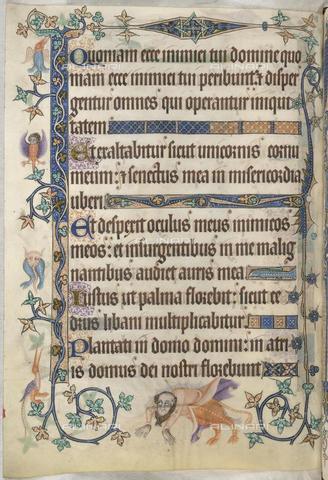 Quoniam ecce inimici tui domine quo
niam ecce inimici tui peribunt: & disper
gentur omnes qui operantur iniqui
tatem
Et exaltabitur sicut unicornis cornu
meum: & senectus mea in misericordia
uberi
Et despexit oculus meus inimicos
meos: et insurgentibus in me malig
nantibus audiet auris mea
Iustus ut palma florebit: sicut ce
drus libani multiplicabitur
Plantati in domo domini: in atri
is domus dei nostri florebunt
ALINARI
ALINARI